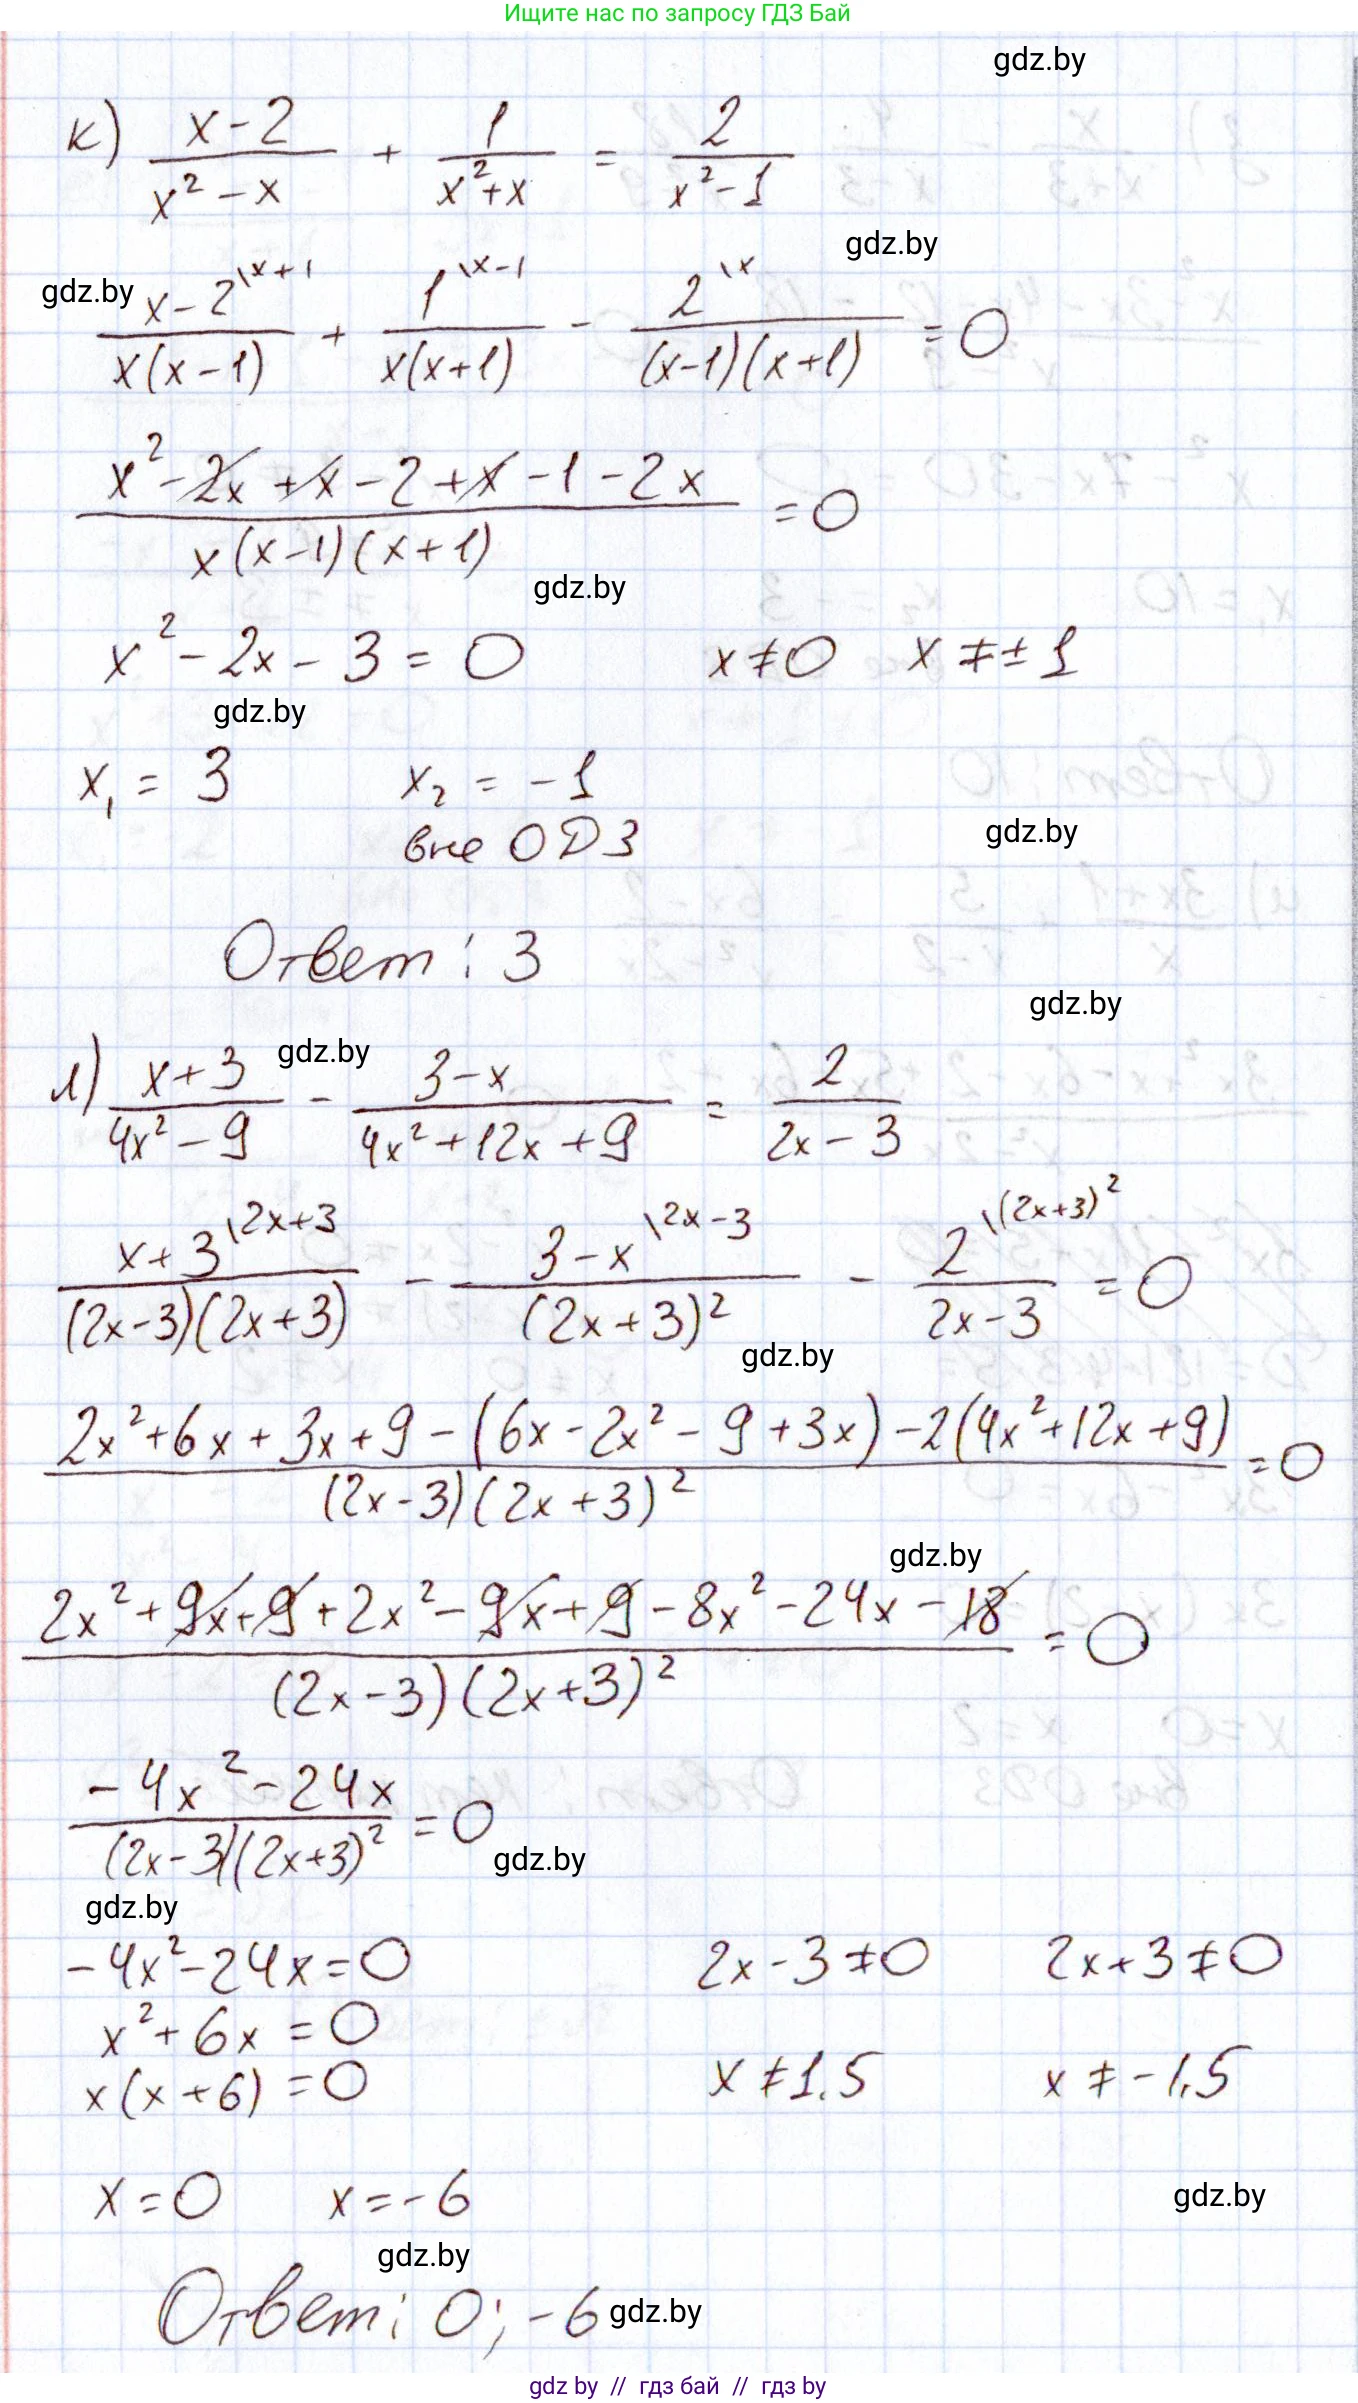 Ищите нас по запросу ГДЗ Бай
gdz.by
к) (x-2)/(x²-x) + 1/(x²+x) = 2/(x²-1)
gdz.by
gdz.by
x-2\x+1/(x(x-1)) + 1\x-1/(x(x+1)) - 2\x/((x-1)(x+1)) = 0
(x²-2x+x-2+x-1-2x)/(x(x-1)(x+1)) = 0
gdz.by
x²-2x-3=0 x≠0 x≠±1
gdz.by
x₁ = 3 x₂ = -1
gdz.by
вне ОДЗ
Ответ: 3
gdz.by
gdz.by
л) (x+3)/(4x²-9) - (3-x)/(4x²+12x+9) = 2/(2x-3)
x+3\2x+3/((2x-3)(2x+3)) - 3-x\2x-3/((2x+3)²) - 2\(2x+3)²/(2x-3) = 0
gdz.by
(2x²+6x+3x+9-(6x-2x²-9+3x)-2(4x²+12x+9))/((2x-3)(2x+3)²) = 0
gdz.by
(2x²+9x+9+2x²-9x+9-8x²-24x-18)/((2x-3)(2x+3)²) = 0
(-4x²-24x)/((2x-3)(2x+3)²) = 0
gdz.by
gdz.by
-4x²-24x=0 2x-3≠0 2x+3≠0
x²+6x=0
x(x+6)=0 x≠1,5 x≠-1,5
x=0 x=-6
gdz.by
gdz.by
Ответ: 0; -6
gdz.by
gdz by // гдз бай // гдз by